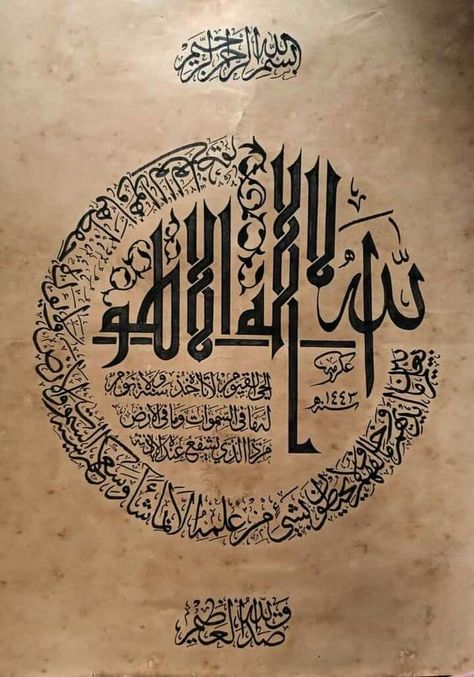 بسم الله الرحمن الرحيم
الله لا اله الا هو
الحي القيوم لا تأخذه سنة ولا نوم
له ما في السموات وما في الارض
من ذا الذي يشفع عنده الا باذنه
يعلم ما بين ايديهم وما خلفهم ولا يحيطون بشيء من علمه الا بما شاء وسع كرسيه السموات والارض ولا يؤده حفظهما وهو
١٤٤٣
صدق الله العظيم